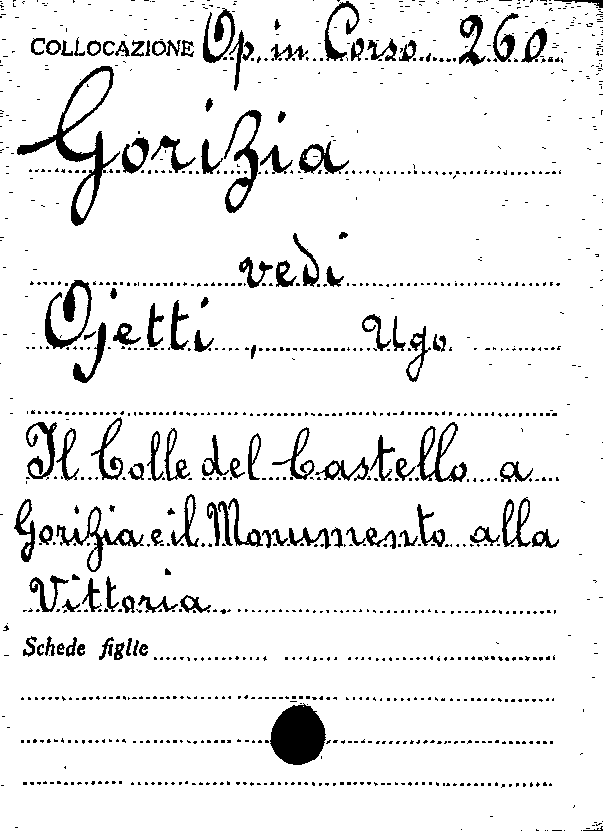 COLLOCAZIONE Op. in Corso. 260
Gorizia
vedi
Ojetti, Ugo
Il Colle del Castello a
Gorizia e il Monumento alla
Vittoria.
Schede figlie